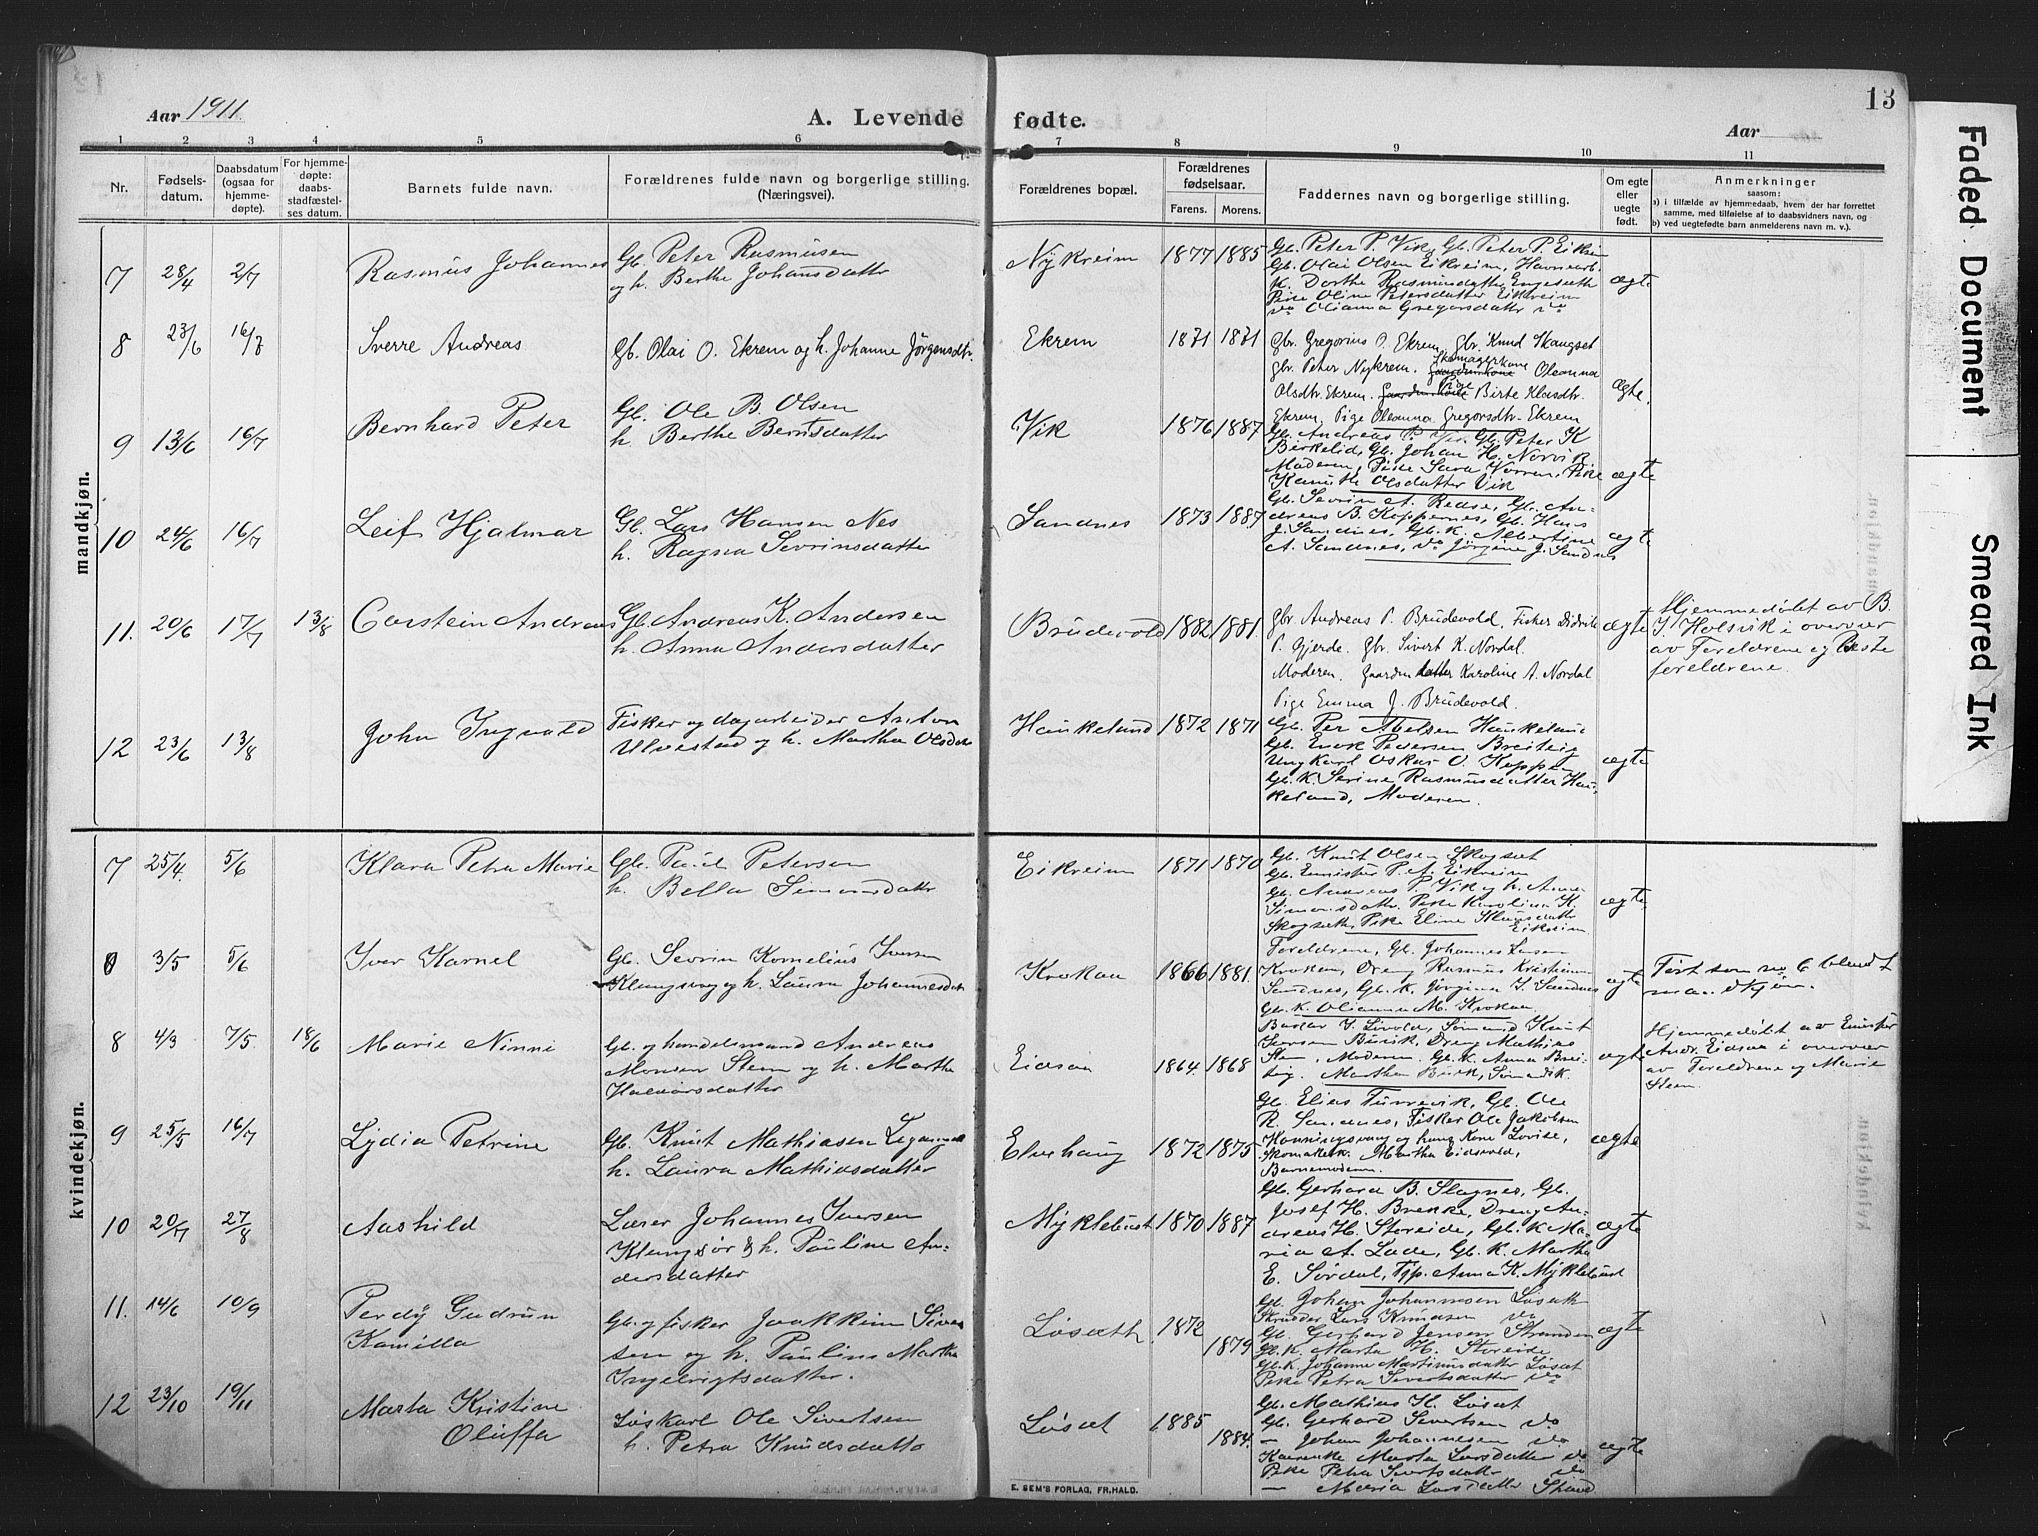 Aar 1911
A. Levende fødte.
Aar
13
1 2 3 4 5 6 7 8 9 10 11
Nr.
Fødsels-
datum.
Daabsdatum
(ogsaa for
hjemme-
døpte).
For hjemme-
døpte:
daabs-
stadfæstel-
ses datum.
Barnets fulde navn.
Forældrenes fulde navn og borgerlige stilling.
(Næringsvei).
Forældrenes bopæl.
Forældrenes
fødselsaar.
Farens. Morens.
Faddernes navn og borgerlige stilling.
Om egte
eller
uegte
født.
Anmerkninger
saasom:
a) i tilfælde av hjemmedaab, hvem der har forrettet
samme, med tilføielse af to daabsvidners navn, og
b) ved uegtefødte børn anmelderens navn m. v.).
mandkjøn.
7 28/4 2/7 Rasmus Johannes
Gb. Peter Rasmusen
og h. Berthe Johansdattr
Nykreim 1877 1885
Gb. Peter P. Vik, Gb. Peter P. Eikrim
Gb. Olai Olsen Eikreim,
K. Dorthe Rasmusdatter Engeseth
Pike Oline Petersdatter Eikreim
do Olianna Gregorsdattr do
ægte
8 23/6 16/7 Sverre Andreas
Gb. Olai O. Ekrem og h. Johanne Jörgensdtr.
Ekrem 1871 1871
Gbr. Gregorius O. Ekrem, Gbr. Knud Skaugset
gbr. Peter Nykrem. Skomagerkone Oleanna
Olsdtr. Ekrem. Pige Birte Klasdtr.
Ekrem, Pige Oleanna Gregorsdtr. Ekrem
ægte.
9 13/6 16/7 Bernhard Peter
Gb. Ole B. Olsen
h. Berthe Berntsdatter
Vik 1876 1887
Gb. Andreas P. Vik. Gb. Peter K
Birkelid, Gb. Johan H. Norvik
Moderen, Pike Sara Vorren, Pike
Olsdatter Vik
ægte
10 24/6 16/7 Leif Hjalmar
Gb. Lars Hansen Nes
h. Ragna Sevrinsdatter
Sandnes 1873 1887
Gb. Sevrin A. Redse, Gb. An-
dreas B. Koppernes, Gb. Hans
J. Sandnes, Gb. k. Albertine
A. Sandnes, do Jörgine J. Sandnes
ægte
11. 20/6 17/7 13/8 Carstein Andreas
Gb. Andreas K. Andersen
h. Anna Andersdatter
Brudevold 1882 1881
Gbr Andreas P. Brudevold, Fisker Didrik
P. Gjerde. Gbr. Sivert K. Nordal
Moderen. Gaardm datter Karoline A. Nordal
Pige Emma J. Brudevold.
ægte
Hjemmedøbt av B.
J. Holsvik i overvær
av Foreldrene og Beste
foreldrene.
12 23/6 13/8 John Ingvald
Fisker og dagarbeider Anton
Ulvestad og h. Martha Olsdtr
Haukeland 1872 1871
Gb. Per Abelsen Haukeland
Gb. Enok Pedersen Breiteig
Ungkarl Oskar O. Koppen
Gb. K. Serine Rasmusdatter Hau-
keland, Moderen.
ægte
kvindekjøn.
7 25/4. 5/6 Klara Petra Marie
Gb. Paul Petersen
h. Bella Simonsdattr
Eikreim 1871 1870
Gb. Knut Olsen Skogset
Gb. Emisær P. A. Eikreim
Gb. Andreas P. Vik og h. Anne
Simonsdattr. Pike Karoline K.
Skogseth, Pike Eline Klausdattr
Eikreim
ægte
3/5 5/6 Iver Karnel
Gb. Sevrin Kornelius Iversen
Klungsvog h. Laura Johannesdatr
Krokaa 1866 1881.
Foreldrene, Gb. Johannes Larsen
Kroken, Dreng Rasmus Kristiansen
Sandnes, Gb. K. Jörgine I. Sandnes
Gb. K. Olianna M. Krokaa
ægte
Fört som no 6 blandt
mandkjön.
8 4/3 7/5. 18/6 Marie Ninni
Gb. og handelsmand Andreas
Monsen Steen og h. Martha
Halvorsdatter
Eidsaa 1864 1868
Iversen Burik, Dreng Mathias
Steen, Moderen. Gb. K. Anna Brei-
teig. Marthea Burik, Sömandsk.
ægte
Hjemmedøbt av Emisær
Andr. Eidsaa i overvær
av Foreldrene og Marie
Steen.
9 25/5 16/7 Lydia Petrine
Gb. Knut Mathiasen
h. Laura Mathiasdatter
Elvehaug 1872 1875
Gb. Elias Tunevik, Gb. Ole
R. Sandnes, Fisker Ole Jakobsen
Honningsvaag og hans Kone Lovise,
Skomakerk. Martha Eidsvold,
Barnemoderen.
ægte
10 20/7 27/8 Aashild
Lærer Johannes Iversen
Klungsör & h. Pauline An-
dersdatter
Myklebust 1870 1887
Gb. Gerhard B. Slagnes, Gb.
Josef H. Brekke, Dreng An-
dreas H. Storeide, Gb. K. Ma-
ria A. Lade, Gb. K. Martha
E. Sørdal, Tjp. Anna K. Myklebust
ægte
11. 14/6 10/9 Perdy Gudrun
Kamilla
Gb. og fisker Joakkim Siver
sen og h. Pauline Martha
Ingebrigtsdatter.
Løsæth 1872 1879
Gb. Johan Johannesen Løsæth
Skrædder Lars Knutsen do
Gb. Gerhard Jensen Stranden
Gb. K. Marta H. Storeide
Gb. K. Johanne Martinusdatter Løsæt
Pike Petra Sivertsdatter do
ægte
12 23/10 19/11 Marta Kristine
Oluffa
Løskarl Ole Sivertsen
h. Petra Knudsdatter
Løsæt 1885 1884.
Gb. Mathias H. Løsæt
Gb. Gerhard Sivertsen do
— Johan Johannesen do
Marta Larsdatter do
Pike Petra Sivertsdatter do
— Maria Larsdatter Strand
ægte
E. SEM'S FORLAG, FR.HALD.
Faded Document
Smeared Ink